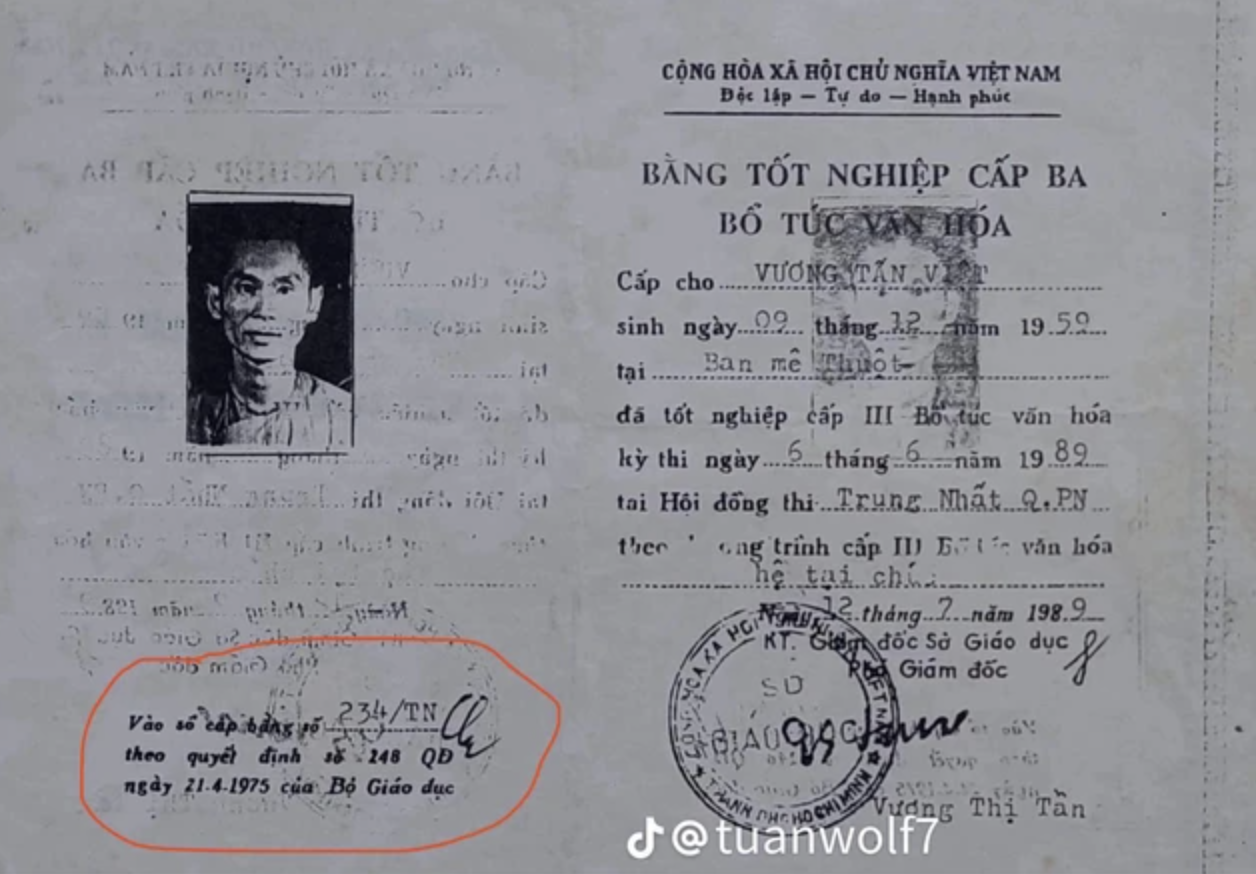 Vào sổ cấp bằng số 234/TN
theo quyết định số 248 QĐ
ngày 21.4.1975 của Bộ Giáo dục
CỘNG HÒA XÃ HỘI CHỦ NGHĨA VIỆT NAM
Độc lập — Tự do — Hạnh phúc
BẰNG TỐT NGHIỆP CẤP BA
BỔ TÚC VĂN HÓA
Cấp cho VƯƠNG TẤN VIỆT
sinh ngày 09 tháng 12 năm 1959
tại Ban mê Thuột
đã tốt nghiệp cấp III Bổ túc văn hóa
kỳ thi ngày 6 tháng 6 năm 1989
tại Hội đồng thi Trung Nhất Q.PN
trình cấp III văn hóa
hệ tại
12 tháng 7 năm 1989
KT. Giám đốc Sở Giáo dục
Phó Giám đốc
SỞ
GIÁO DỤC
THÀNH PHỐ HỒ CHÍ MINH
Vương Thị Tần
@tuanwolf7